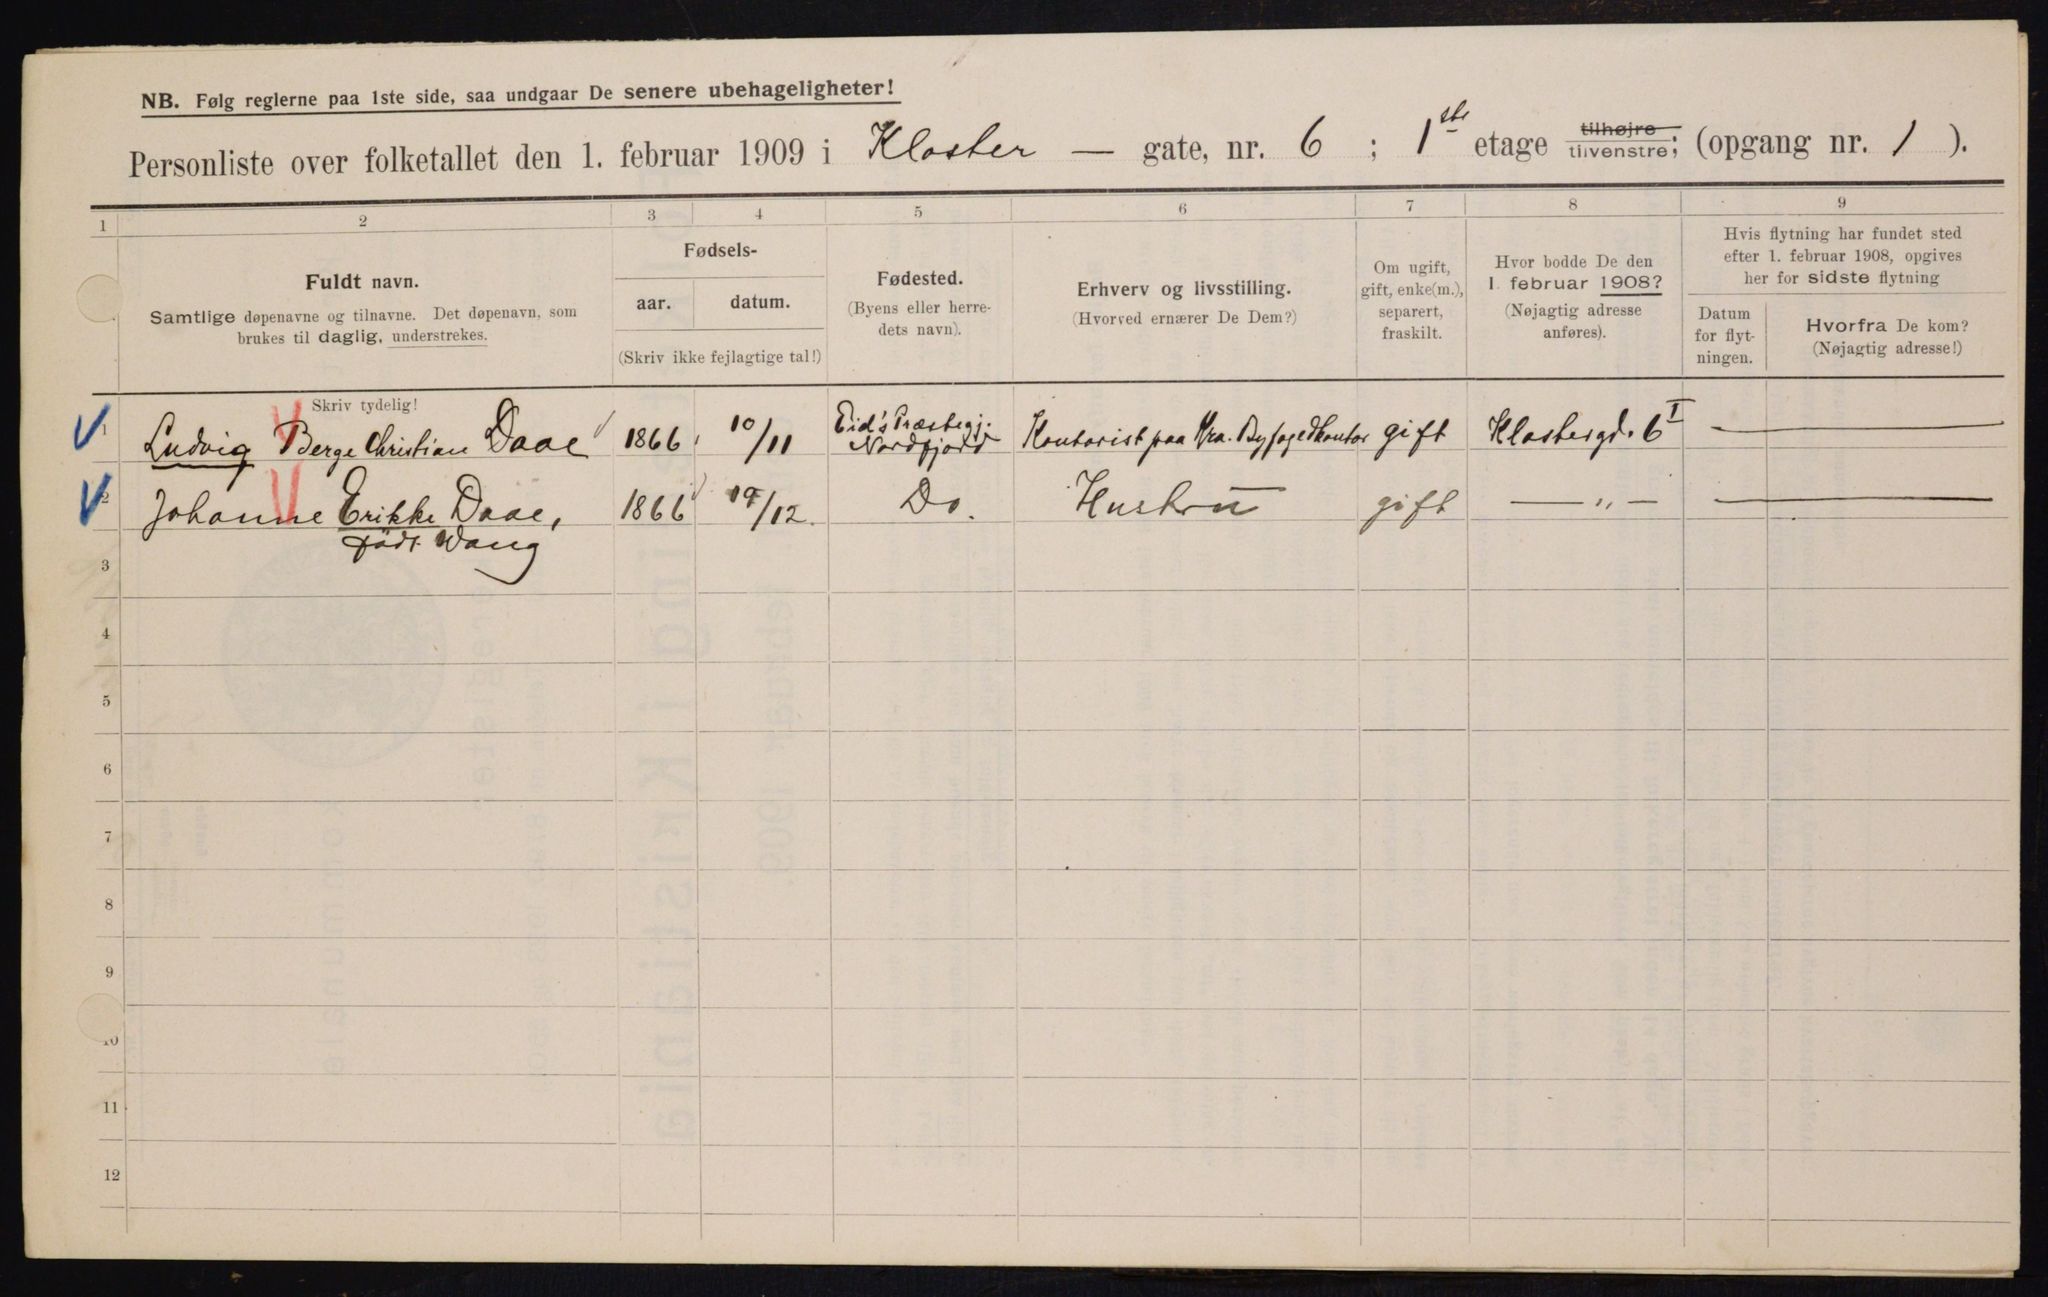 NB. Følg reglerne paa 1ste side, saa undgaar De senere ubehageligheter!
Personliste over folketallet den 1. februar 1909 i Kloster — gate, nr. 6 ; 1ste etage tilhøjre tilvenstre; (opgang nr. 1 ).
1 2 3 4 5 6 7 8 9
Fuldt navn.
Samtlige døpenavne og tilnavne. Det døpenavn, som
brukes til daglig, understrekes.
Fødsels-
aar. datum.
(Skriv ikke fejlagtige tal!)
Fødested.
(Byens eller herre-
dets navn).
Erhverv og livsstilling.
(Hvorved ernærer De Dem?)
Om ugift,
gift, enke(m.),
separert,
fraskilt.
Hvor bodde De den
1. februar 1908?
(Nøjagtig adresse
anføres).
Hvis flytning har fundet sted
efter 1. februar 1908, opgives
her for sidste flytning
Datum
for flyt-
ningen.
Hvorfra De kom?
(Nøjagtig adresse!)
Skriv tydelig!
1 Ludvig Berge Christian Daae 1866 10/11 Eid's Præstegj. Nordfjord Kontorist paa Kra. Byfogedkontor gift Klostergd. 6 I
2 Johanne Erikke Daae, 1866 19/12. Do. Hustru gift — „ —
født Wang
3
4
5
6
7
8
9
10
11
12